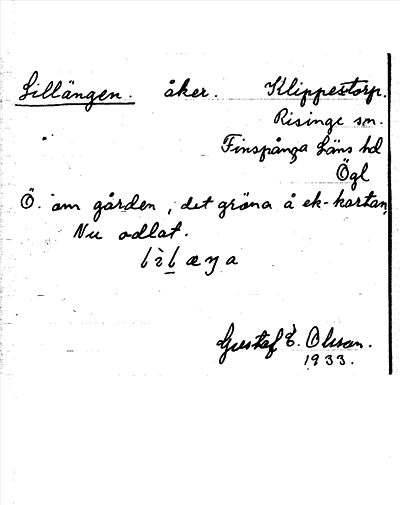 Lillängen. åker. Klippestorp.
Risinge sn.
Finspånga läns hd
Ögl
Ö. om gården, det gröna å ek-kartan,
Nu odlat.
lìlæŋa
Gustaf E. Olsson.
1933.